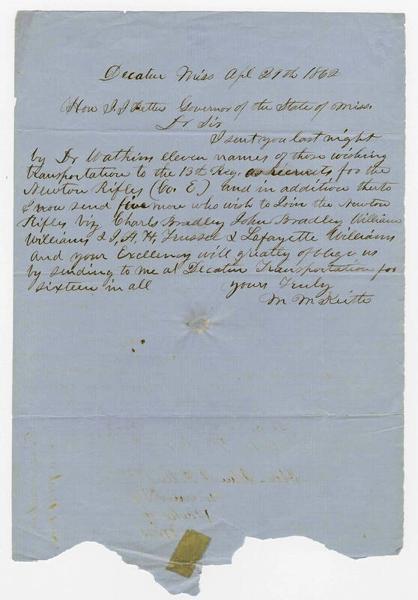 Decatur Miss Apl 29th 1862
Hon J J Pettus Governor of the State of Miss.
Dr Sir
I sent you last night
by Dr Watkins eleven names of those wishing
transportation to the 13th Reg. as recruits for the
Newton Rifles (Co. E.) and in addition thereto
I now send five more who wish to Join the Newton
Rifles Viz Charls Bradley John Bradley William
Williams & J. A. H. Trussel & Lafayette Williams
and your Excellency will greatly oblige us
by sending to me at Decatur Transportation for
sixteen in all
yours Truly
M M Keith